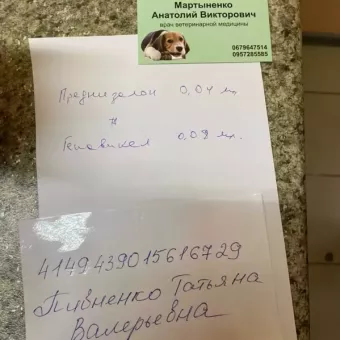 Мартыненко
Анатолий Викторович
врач ветеринарной медицины
0679647514
0957285585
Преднизолон 0,04 мл
Гепавикел 0,08 мл.
4149439015616729
Пивненко Татьяна
Валерьевна